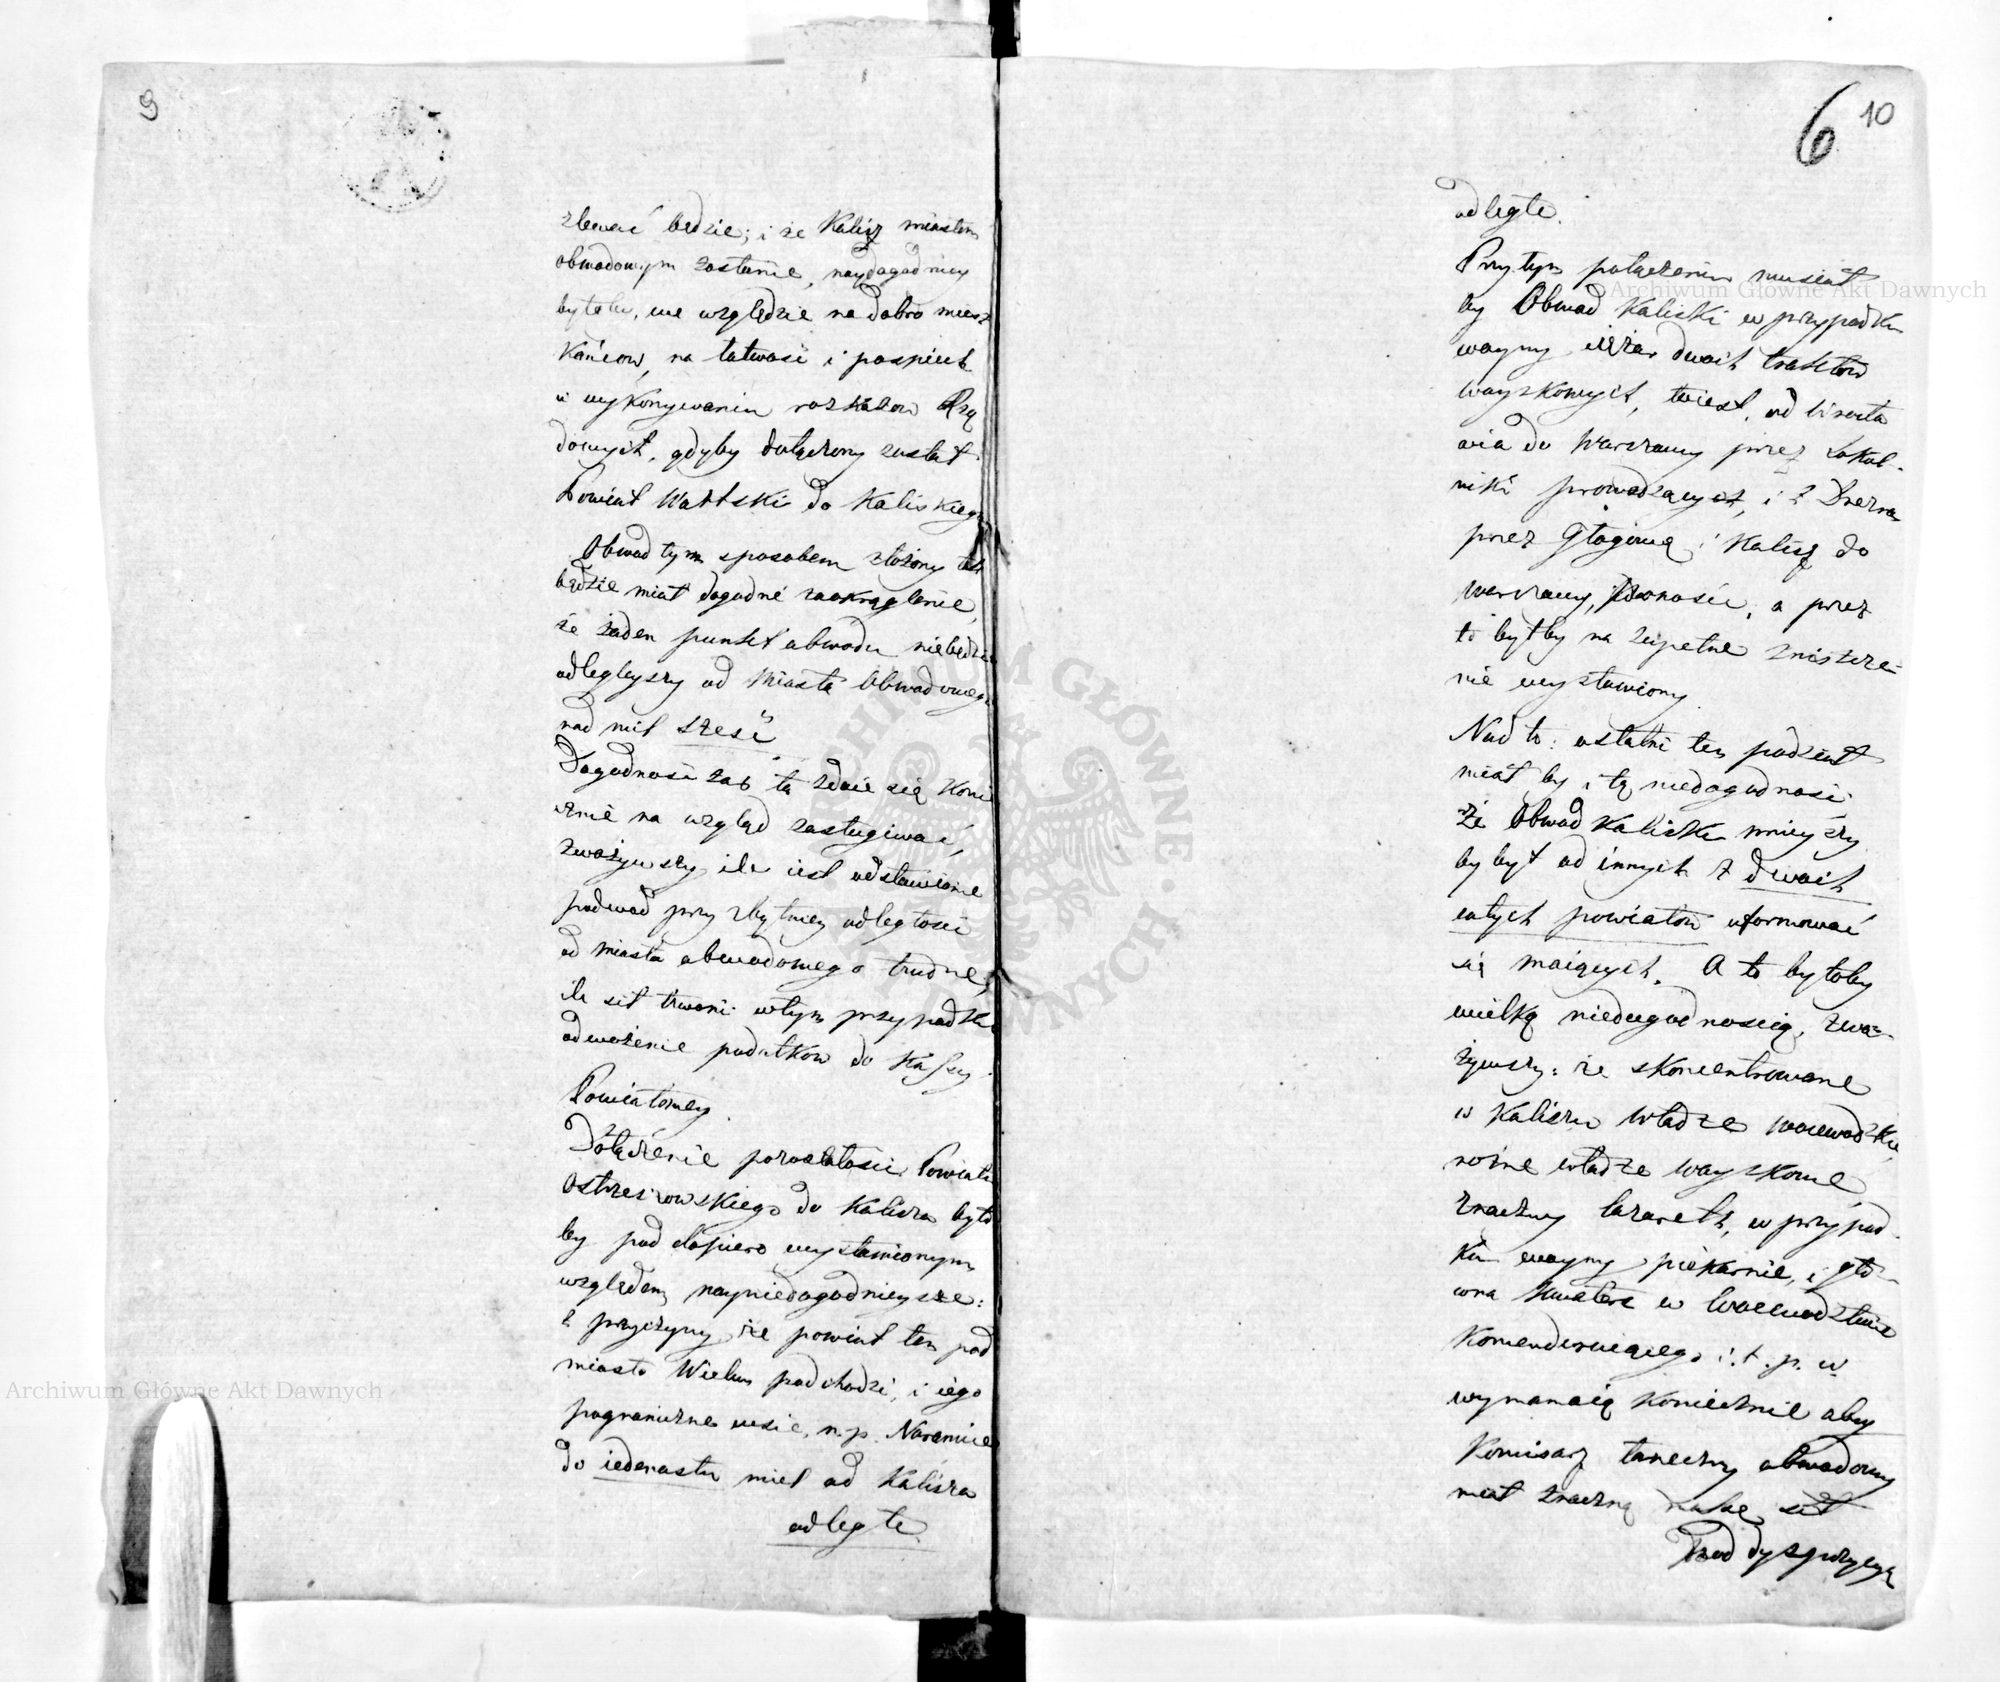 9
zlewać będzie; i że Kalisz miastem
obwodowym zostanie, naydogodniey
byłoby, we względzie na dobro miesz
kańcow, na łatwość i pospiech
w wykonywaniu rozkazow Rzą
dowych, gdyby dołączony został
Powiat Wartski do Kaliskiego
Obwod tym sposobem złożony tak
będzie miał dogodne zaokrąglenie,
że żaden punkt obwodu niebędzie
odlegleyszy od Miasta Obwodowego
nad mil sześć
Dogodność zaś ta zdaie się koni
cznie na wzgląd zasługiwać,
zważywszy ile iest odstawienie
podwod przy zbytniey odległości
od miasta obwodowego trudne,
ile sił trwoni w tym przypadku
odwożenie podatkow do Kassy
Powiatowey.
Dołączenie pozostałości Powiatu
Ostrzeszowskiego do Kalisza było
by pod dopiero wystawionym
względem nayniedogodnieysze:
z przyczyny że powiat ten pod
miasto Wieluń podchodzi, i iego
pograniczne wsie, n. p. Naramice
do iedenastu mil od Kalisza
odległe
6 10
odległe.
Przytym połączeniu musiał
by Obwod Kaliski w przypadku
woyny ciężar dwoch traktow
woyskowych, to iest, od Wrocła
wia do Warszawy przez Sokol-
niki prowadzących, i z Drezna
przez Głogowę i Kalisz do
Warszawy, ponosić, a przez
to byłby na zupełne zniszcze-
nie wystawiony.
Nad to: ostatni ten podział
miał by i tę niedogodność
że Obwod Kaliski mnieyszy
by był od innych z dwoch
całych powiatow uformować
się maiących. A to byłoby
wielką niedogodnością, zwa-
żywszy: że skoncentrowane
w Kaliszu Władze woiewodzkie,
rożne władze woyskowe,
znaczny lazareth, w przypad-
ku woyny piekarnie, i głó-
wna kwatera w Woiewodztwie
Komenderuiącego i. t. p. w
wymamaią koniecznie aby
Komisarz tameczny obwodowy
miał znaczną masę sił
Pod dyspozycyą